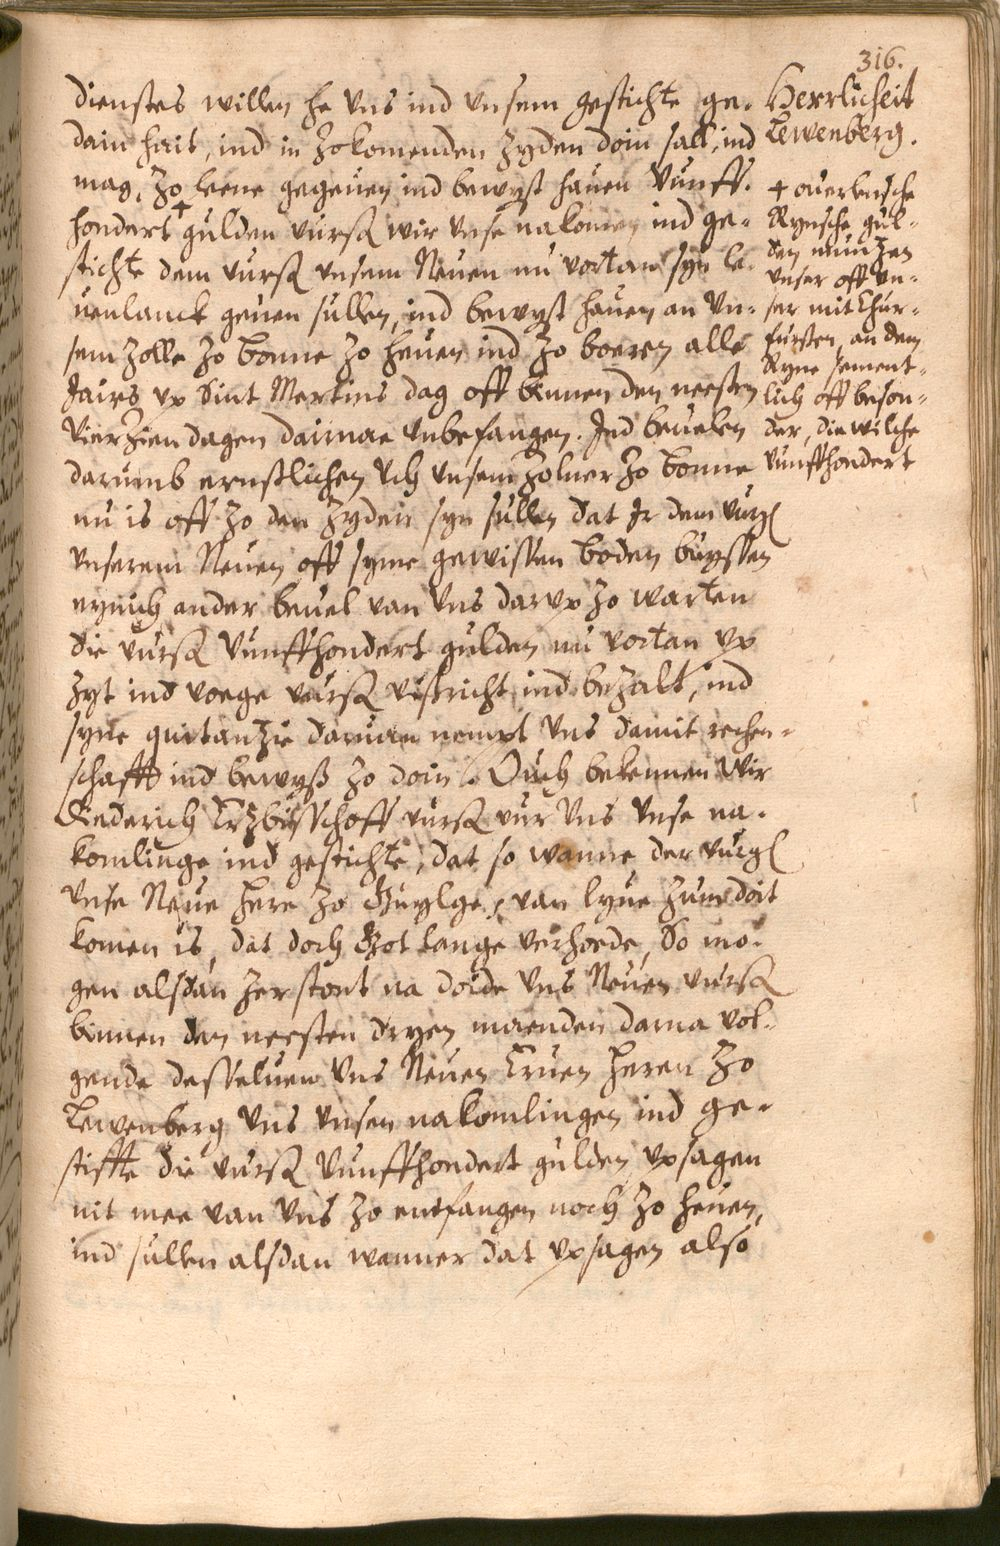 316.
Herrlicheit
Lewenberg.
dienstes willen he vns ind vnsem gestichte ge-
dain hait, ind in zokomenden zyden doin sall, ind
mag, zo leene gegeuen ind bewyst hauen vunff-
hondert + gulden vursß wir vnse nakomen ind ge-
stichte dem vursß vnsem Neuen nu vortan syn le-
uenlanck geuen sullen, ind bewyst hauen an vn-
sem zolle zo bonne zo heuen ind zo boeren alle
Jairs vp Sint Mertins dag off binnen den neesten
vierzien dagen dairnae vnbefangen. Ind beuelen
darumb ernstlichen vch vnsem zolner zo bonne
nu is off zo den zyden syn sullen dat Ir dem vurß
vnserem Neuen off syme gewissen boden buyssen
eynich ander beuel van vns darvp zo warten
die vursß vunffhondert gulden nu vortan vp
zyt ind voege vursß vißricht ind bezalt, ind
syne quitanzie daruan nempt vns damit rechen-
schafft ind bewyß zo doin. Ouch bekennen wir
Diederich Ertzbusschoff vursß vur vns vnse na-
komlinge ind gestichte, dat so wanne der vurß
vnse Neue here zo Guylge, van lyue zum doit
komen is, dat doch Got lange verhoede, So mo-
gen alsdan zerstont na doide vns Neuen vursß
binnen den neesten dryen maenden darna vol-
gende desseluen vns Neuen Eruen heren zo
Lewenberg vns vnsen nakomlingen ind ge-
stiffte die vursß vunffhondert gulden vpsagen
nit mee van vns zo entfangen noch zo heuen,
ind sullen alsdan wanner dat vpsagen also
+ ouerlensche
Rynsche gul-
den muntzen
vnser off vn-
ser mit Chur-
fursten, an dem
Ryne sement-
lich off beson-
der, die wilche
vunffhondert